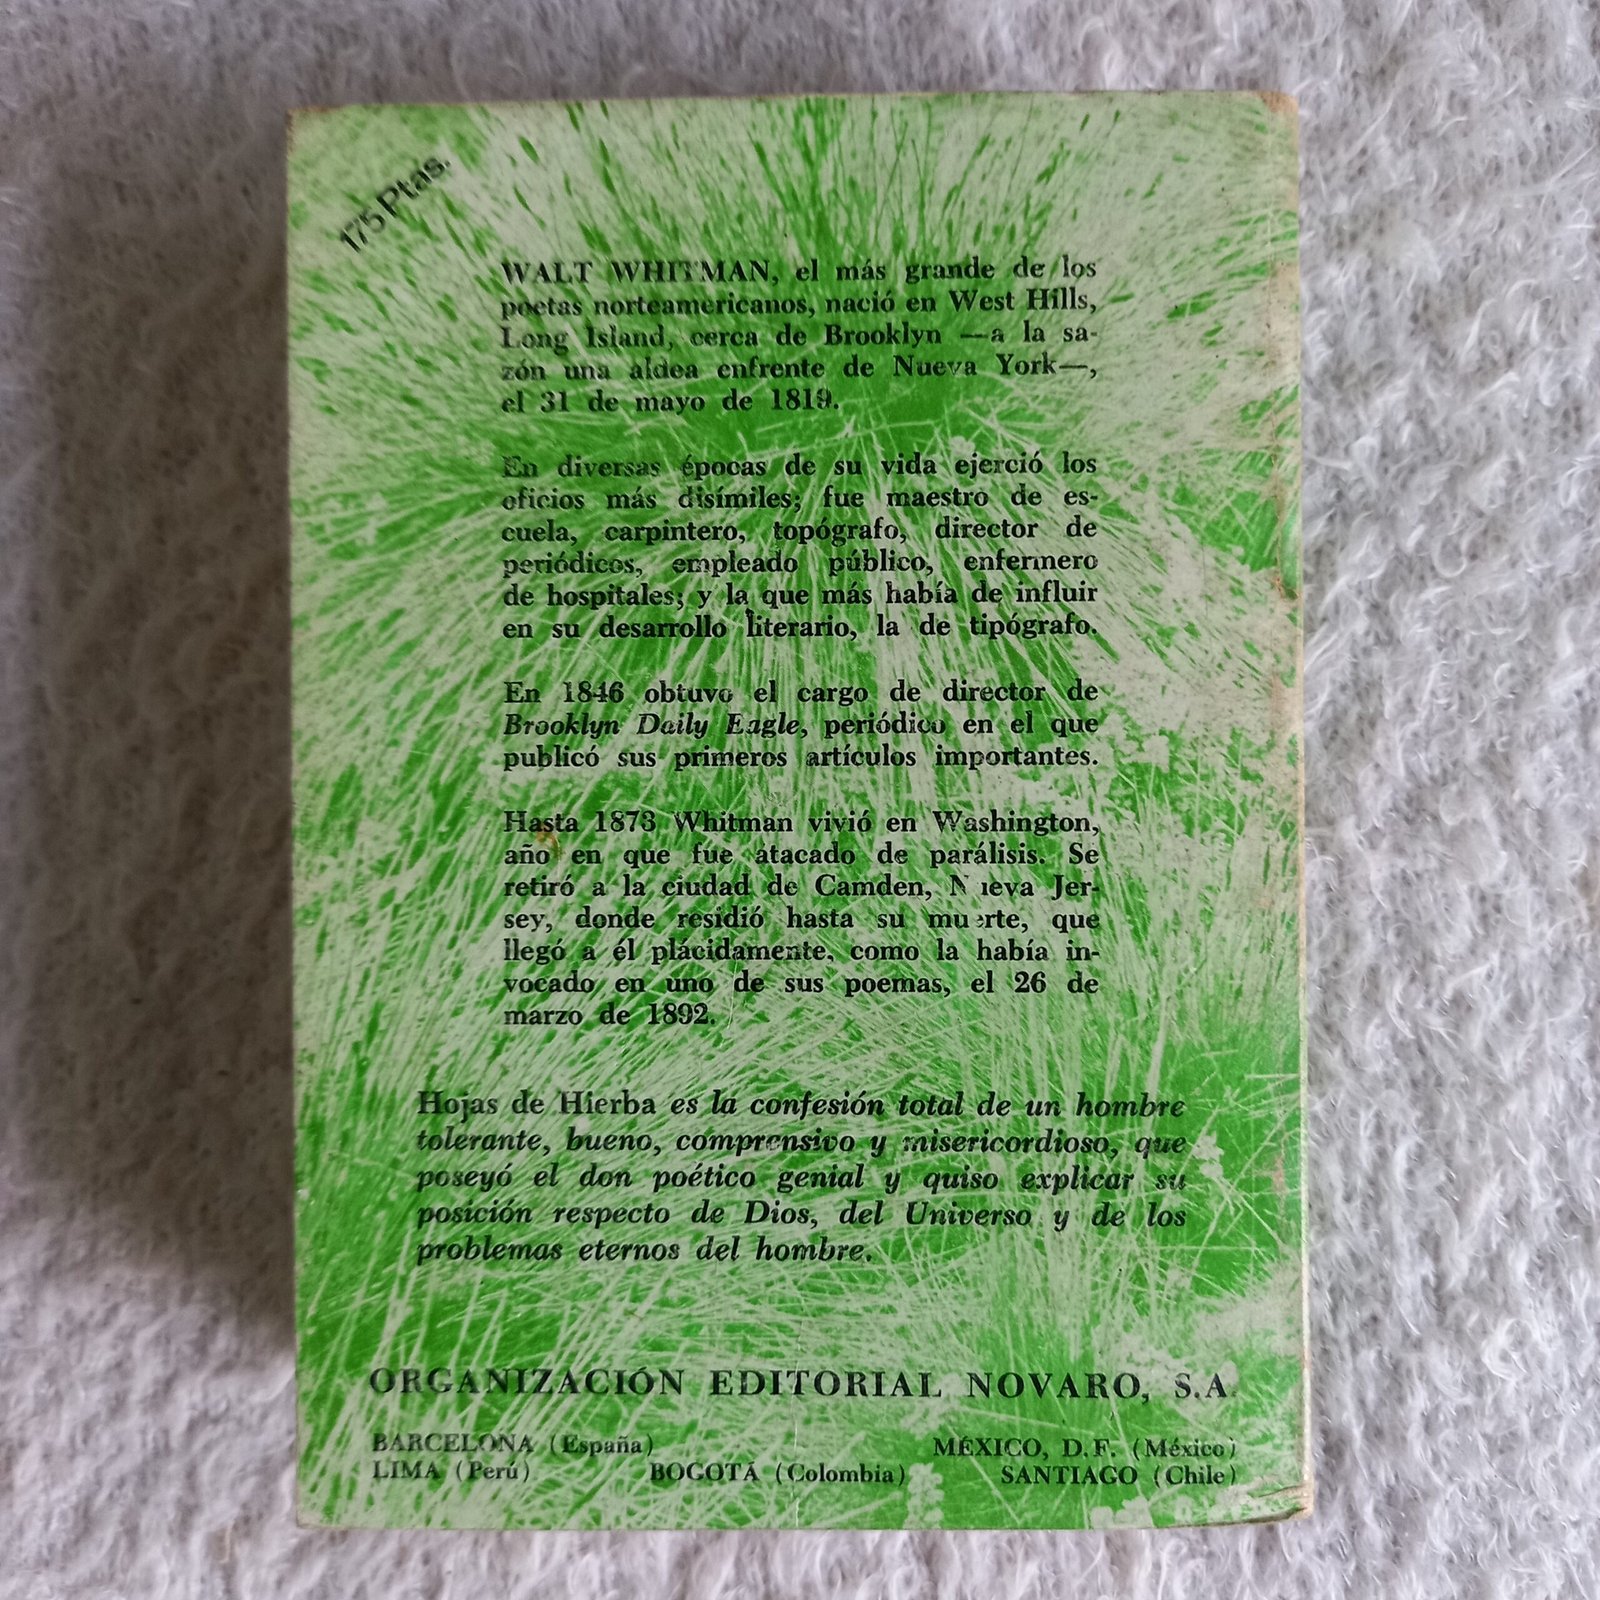 175 Ptas.
WALT WHITMAN, el más grande de los
poetas norteamericanos, nació en West Hills,
Long Island, cerca de Brooklyn —a la sa-
zón una aldea enfrente de Nueva York—,
el 31 de mayo de 1819.
En diversas épocas de su vida ejerció los
oficios más disímiles; fue maestro de es-
cuela, carpintero, topógrafo, director de
periódicos, empleado público, enfermero
de hospitales; y la que más había de influir
en su desarrollo literario, la de tipógrafo.
En 1846 obtuvo el cargo de director de
Brooklyn Daily Eagle, periódico en el que
publicó sus primeros artículos importantes.
Hasta 1873 Whitman vivió en Washington,
año en que fue atacado de parálisis. Se
retiró a la ciudad de Camden, Nueva Jer-
sey, donde residió hasta su muerte, que
llegó a él plácidamente, como la había in-
vocado en uno de sus poemas, el 26 de
marzo de 1892.
Hojas de Hierba es la confesión total de un hombre
tolerante, bueno, comprensivo y misericordioso, que
poseyó el don poético genial y quiso explicar su
posición respecto de Dios, del Universo y de los
problemas eternos del hombre.
ORGANIZACIÓN EDITORIAL NOVARO, S.A.
BARCELONA (España) MÉXICO, D.F. (México)
LIMA (Perú) BOGOTÁ (Colombia) SANTIAGO (Chile)